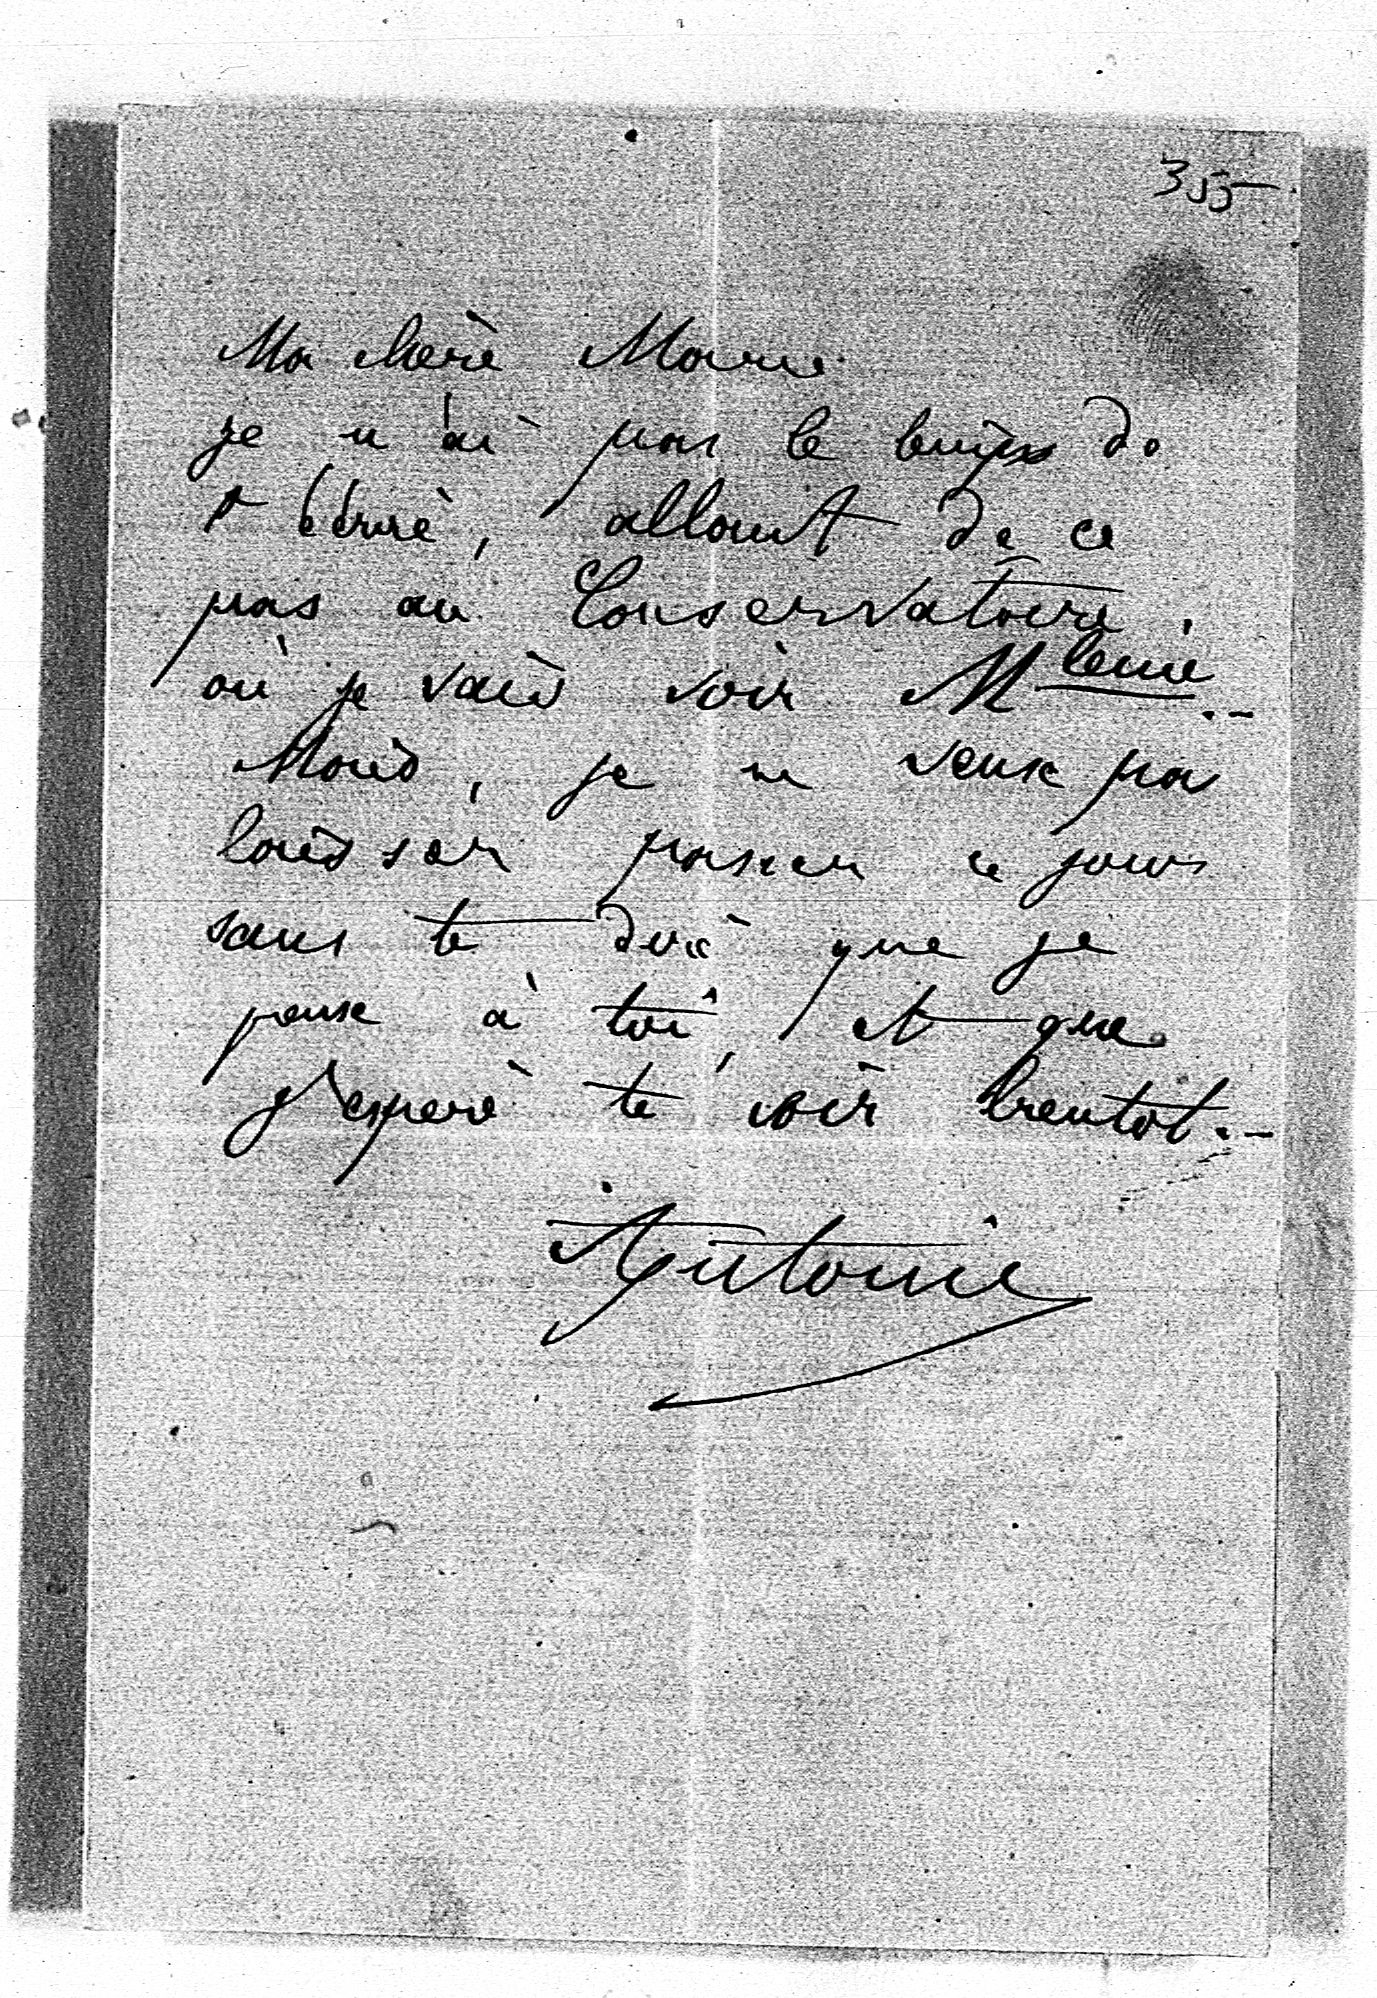 355
Ma chère Marie
je n'ai pas le temps de
t'écrire, allant de ce
pas au Conservatoire,
où je vais voir M
Mais, je ne veux pas
laisser passer ce jour
sans te dire que je
pense à toi, et que
j'espère te voir bientôt.-
Antonie